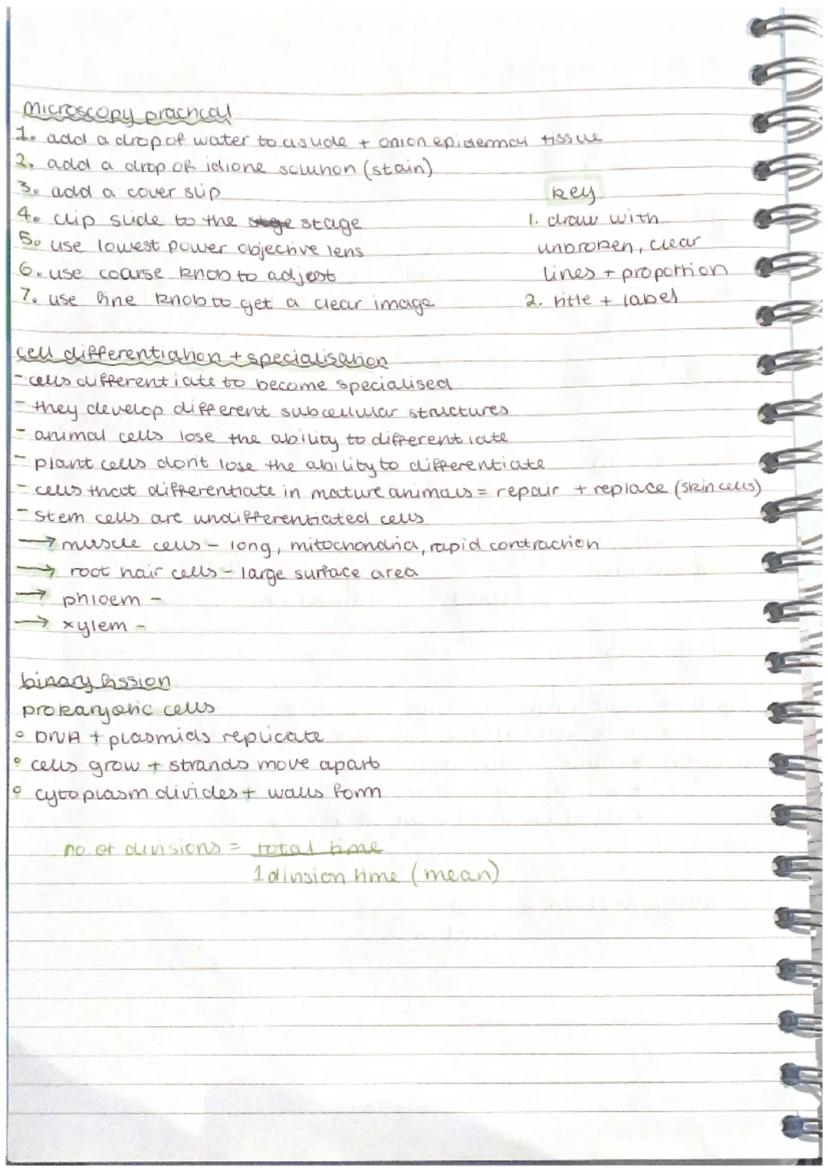 microscopy practical
1. add a drop of water to a slide + onion epidermal tissue
2. add a drop of idione solution (stain)
3. add a cover slip
4. clip slide to the stage
5. use lowest power objective lens
6. use coarse knob to adjest
7. use fine knob to get a clear image
key
1. draw with
unbroken, clear
lines + proportion
2. title + label
cell differentiation + specialisation
- cells differentiate to become specialised
- they develop different subcellular structures
- animal cells lose the ability to differentiate
- plant cells don't lose the ability to differentiate
- cells that differentiate in mature animals = repair + replace (skin cells)
- stem cells are undifferentiated cells
→ muscle cells - long, mitochondria, rapid contraction
→ root hair cells - large surface area
→ phloem -
→ xylem -
binary fission
prokaryotic cells
• DNA + plasmids replicate
• cells grow + strands move apart
• cytoplasm divides + walls form
no of divisions = total time
1 division time (mean)